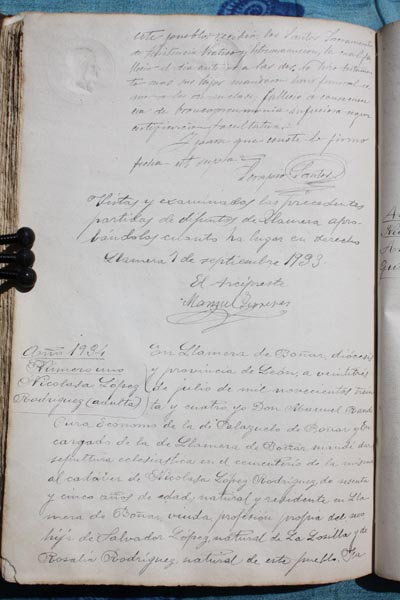 este pueblo: recibió los Santos Sacramentos
de Penitencia Viático y Extremaunción, la cual fa-
lleció el día anterior a las dos, no hizo testamen-
to mas sus hijos mandaron hacer funeral se-
gún su clase, falleció a consecuen-
cia de bronconeumonía según
certificación facultativa.
Y para que conste lo firmo
fecha ut supra =
Santos
Vistas y examinadas las precedentes
partidas de difuntos de Llamera apro-
bándolas cuanto ha lugar en derecho
Llamera 7 de septiembre 1933
El Arcipreste
Manuel
Año 1934
Número uno
Nicolasa López
Rodríguez (adulta)
En Llamera de Boñar, diócesis
y provincia de León, a veintitrés
de julio de mil novecientos trein-
ta y cuatro, yo Don Manuel
Cura Ecónomo de la de Palazuelo de Boñar y En
cargado de la de Llamera de Boñar mandé dar
sepultura eclesiástica en el cementerio de la misma
al cadáver de Nicolasa López Rodríguez, de
y cinco años de edad, natural y residente en Lla
mera de Boñar, viuda, profesión propia del sexo
hija de Salvador López, natural de La Losilla y de
Rosalía Rodríguez, natural de este pueblo.